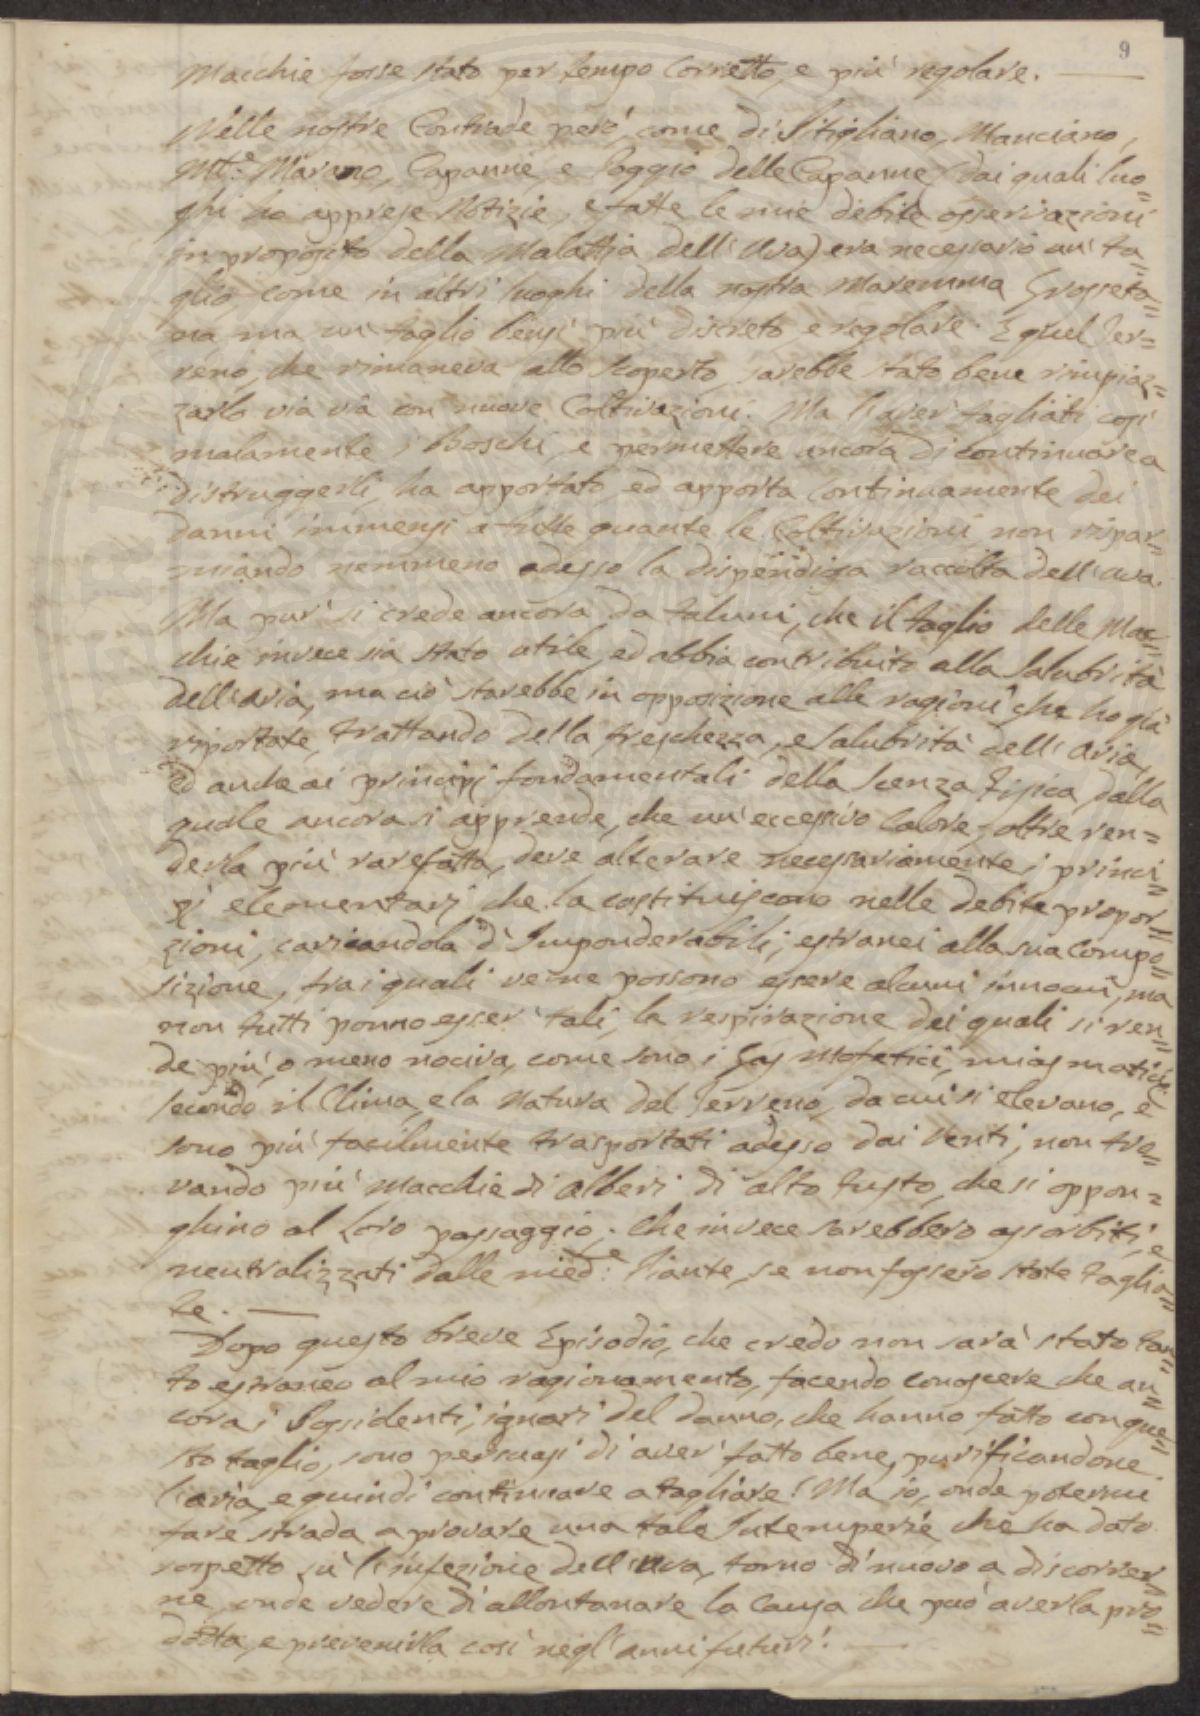 9
Macchie fosse stato per tempo Corretto, e più regolare. —
Nelle nostre Contrade però, come di Pitigliano, Manciano,
Mte. Marano, Capanne e Poggio delle Capanne (dai quali luo=
ghi ho apprese Notizie, e fatte le mie debite osservazioni
in proposito della Malattia dell'Uva) era necessario un' ta=
glio, come in altri luoghi della nostra Maremma Grosseta=
na ma un' taglio bensì più discreto, e regolare. E quel Ter=
reno, che rimaneva allo scoperto, sarebbe stato bene rimpiaz=
zarlo via via con nuove Coltivazioni. Ma l'aver' tagliati così
malamente i Boschi, e permettere ancora di continuare a
distruggerli, ha apportato, ed apporta Continuamente dei
danni immensi a tutte quante le Coltivazioni, non rispar=
miando nemmeno adesso la dispendiosa raccolta dell'uva.
Ma pur' si crede ancora da taluni, che il taglio delle Mac=
chie invece sia stato utile, ed abbia contribuito alla Salubrità
dell'aria, ma ciò starebbe in opposizione alle ragioni che ho già
riportate, trattando della freschezza, e Salubrità dell'Aria,
ed anche ai principj fondamentali della Scenza Fisica, dalla
quale ancora si apprende, che un' eccessivo Calore, oltre ren=
derla più rarefatta, deve alterare necessariamente i princi=
pj elementarj che la costituiscono nelle debite propor=
zioni, caricandola d'Imponderabili, estranei alla sua Compo=
sizione, tra i quali ve ne possono essere alcuni innocui, ma
non tutti ponno esser' tali, la respirazione dei quali si ren=
de più, o meno nociva, come sono i Gas Mofetici, miasmatici,
secondo il Clima, e la Natura del Terreno, da cui si elevano, e
sono più facilmente trasportati adesso dai Venti, non tro=
vando più Macchie di Alberi di alto fusto, che si oppon=
ghino al loro passaggio. Che invece sarebbero assorbiti, e
neutralizzati dalle med:e Piante, se non fossero state taglia=
te. —
Dopo questo breve Episodio, che credo non sarà stato tan=
to estraneo al mio ragionamento, facendo conoscere che an=
cora i Possidenti, ignari del danno, che hanno fatto con que=
sto taglio, sono persuasi di aver' fatto bene, purificandone
l'aria, e quindi continuare a tagliare! Ma io, onde potermi
fare strada a provare una tale Intemperie che ha dato
sospetto sù l'infezione dell'Uva, torno di nuovo a discorrer=
ne, onde vedere di allontanare la Causa che può averla pro=
dotta, e prevenirla così negl'anni futuri. —